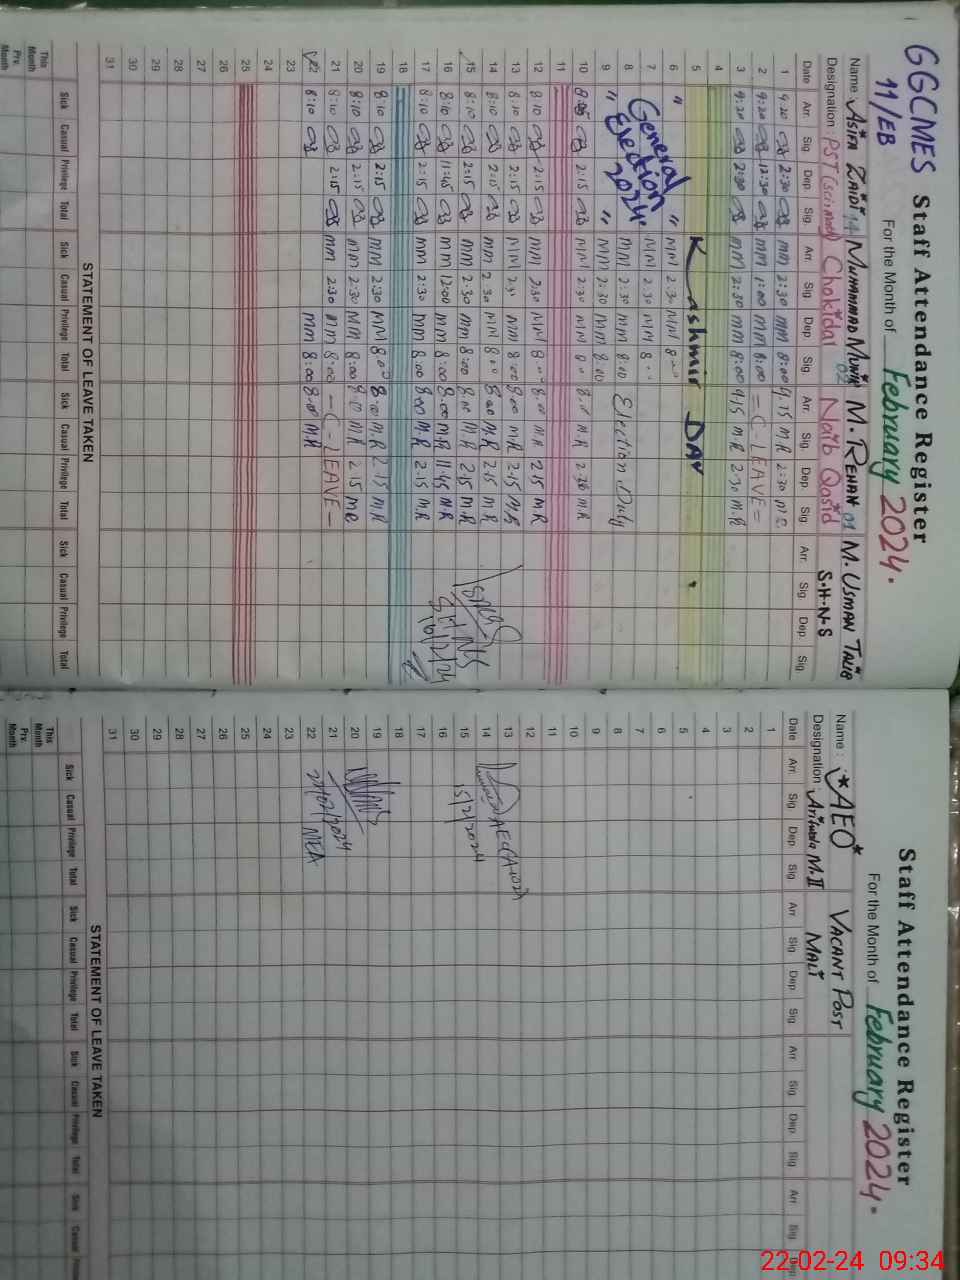 GGCMES Staff Attendance Register
11/EB For the Month of February 2024.
Name: ASIA ZAIDI MUHAMMAD MUNIR M. REHAN 01 M. USMAN TAIB
Designation: PST (sci.math) Chokidar 02 Naib Qasid S.H.N.S
Date Arr. Sig. Dep. Sig. Arr Sig. Dep Sig. Arr. Sig. Dep. Sig. Arr. Sig. Dep. Sig.
1 9:20 2:30 MM 2:30 MM 8:00 9.15 M R 2:30 M R
2 9:20 12:30 MM 1:00 MM 8:00 = C LEAVE =
3 9:20 2:30 MM 2:30 MM 8:00 9.15 M.R 2.30 M.R
4
5 Kashmir DAY
6 " " MM 2.30 MM
7 General MM 2.30 MM 8
8 Election MM 2.30 MM 8:00 Election Duty
9 " 2024 " MM 2:30 MM 8:00
10 2:15 MM 2:30 MM 8.00 M.R 2.30 M.R
11
12 8:10 2:15 MM 2:30 MM 8.00 M.R 2.15 M.R
13 8:10 2:15 MM MM 8:00 8.00 M.R 2.15 M.R
14 8:10 2:15 MM 2.30 MM 8.00 M.R 2.15 M.R
15 8:10 2:15 MM 2.30 MM 8:00 8.00 M.R 2.15 M.R
16 8:10 11:45 MM 12:00 MM 8:00 8.00 M.R 11.45 M.R
17 8:10 2:15 MM 2:30 MM 8:00 8.00 M.R 2.15 M.R
18
19 8:10 2:15 MM 2:30 MM 8:00 M.R 2.15 M.R
20 8:10 2:15 MM 2:30 MM 8:00 M.R 2.15 M.R
21 8:10 2:15 MM 2:30 MM 8:00 - C-LEAVE -
22 8:10 MM 8:00 8.00 M.R
23
24
25
26
27
28
29
30
31
SHNS
16/2/24
STATEMENT OF LEAVE TAKEN
Sick Casual Privilege Total Sick Casual Privilege Total Sick Casual Privilege Total Sick Casual Privilege Total
This Month
Prv. Month
Staff Attendance Register
For the Month of February 2024.
Name: *AEO* VACANT POST
Designation: Arifwala M.II MALI
Date Arr. Sig Dep. Sig. Arr Sig. Dep Sig. Arr Sig. Dep. Sig. Arr Sig. Dep
1
2
3
4
5
6
7
8
9
10
11
12
13 AEO
14
15 15/2/2024
16
17
18
19
20
21 21/02/2024
22 MEA
23
24
25
26
27
28
29
30
31
STATEMENT OF LEAVE TAKEN
Sick Casual Privilege Total Sick Casual Privilege Total Sick Casual Privilege Total Sick Casual
This Month
Prv. Month
22-02-24 09:34